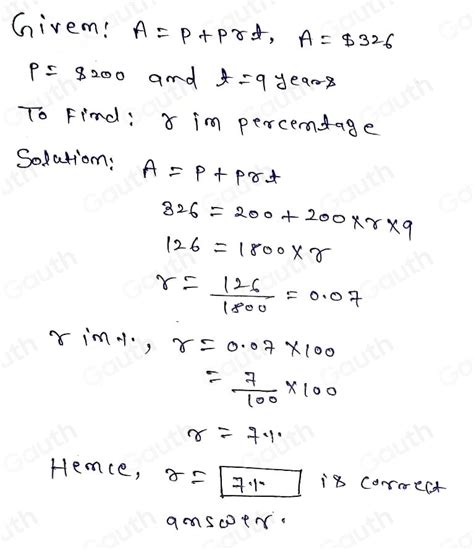 Given: A = P + Prt, A = $326
P = $200 and t = 9 years
To Find: r in percentage
Solution: A = P + Prt
326 = 200 + 200 × r × 9
126 = 1800 × r
r = 126/1800 = 0.07
r in %, r = 0.07 × 100
= 7/100 × 100
r = 7%
Hence, r = 7% is correct
answer.